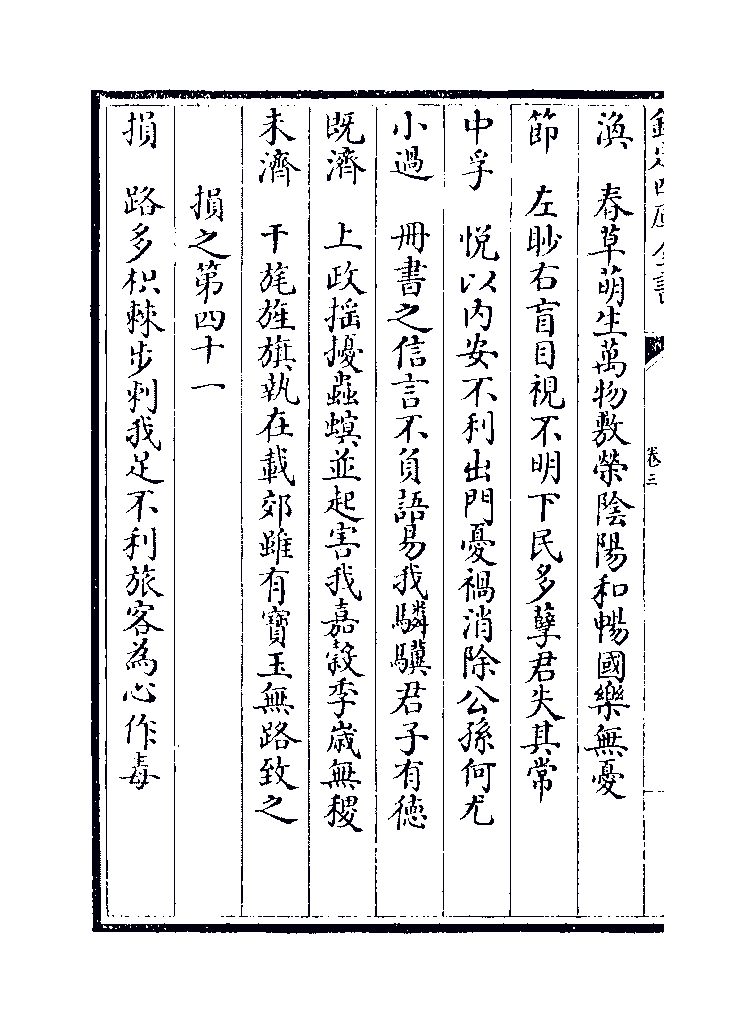 欽定四庫全書
卷三
渙　春草萌生萬物敷榮陰陽和暢國樂無憂
節　左眇右盲目視不明下民多孽君失其常
中孚　悅以内安不利出門憂禍消除公孫何尤
小過　冊書之信言不負語易我驎驥君子有德
既濟　上政搖擾蟲螟並起害我嘉穀季歲無稷
未濟　干旄旌旗執在載郊雖有寶玉無路致之
損之第四十一
損　路多枳棘步刺我足不利旅客為心作毒